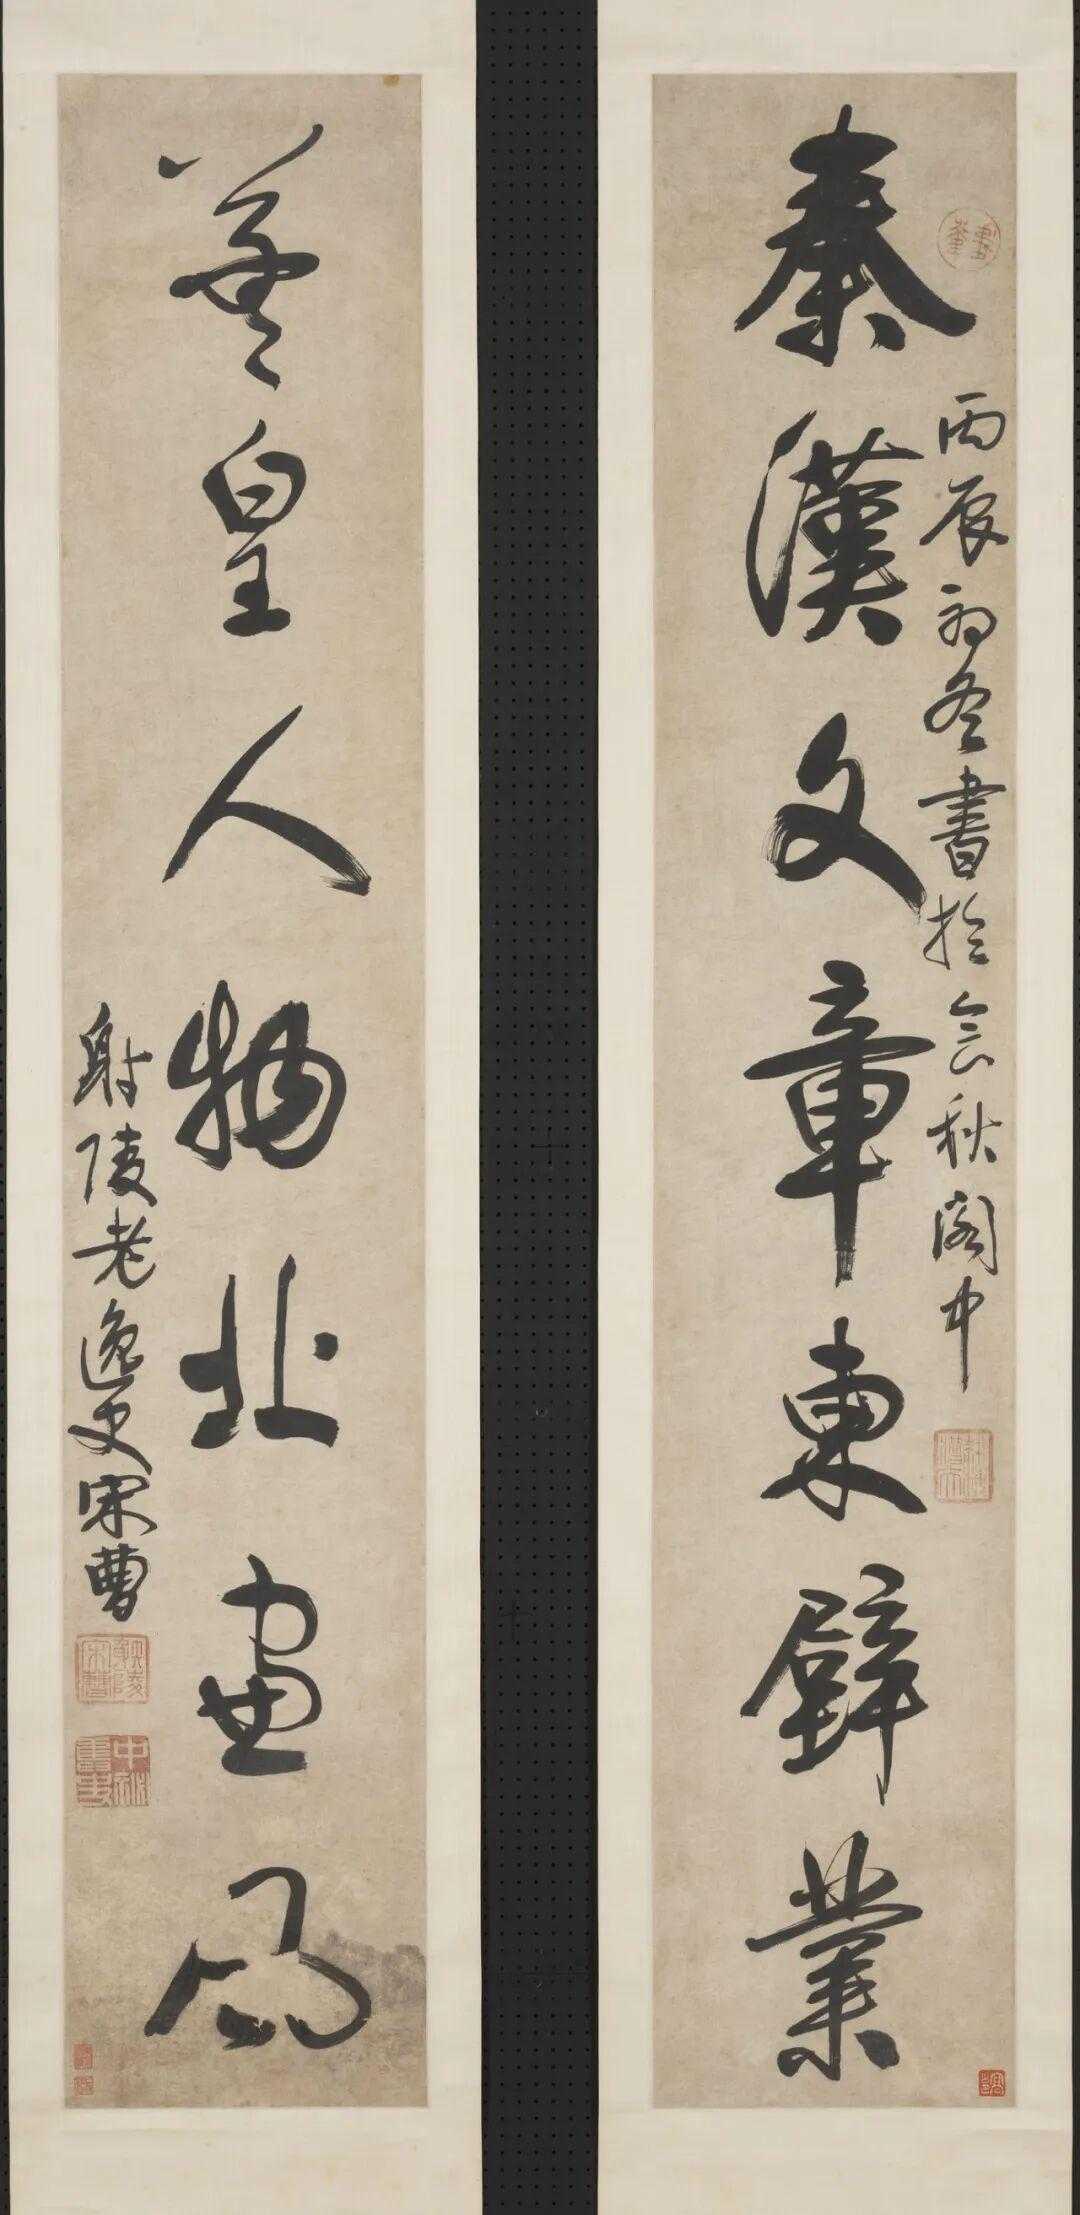 丙辰初冬書於會秋閣中
秦漢文章東壁業
羲皇人物北窗風
射陵老逸史宋曹